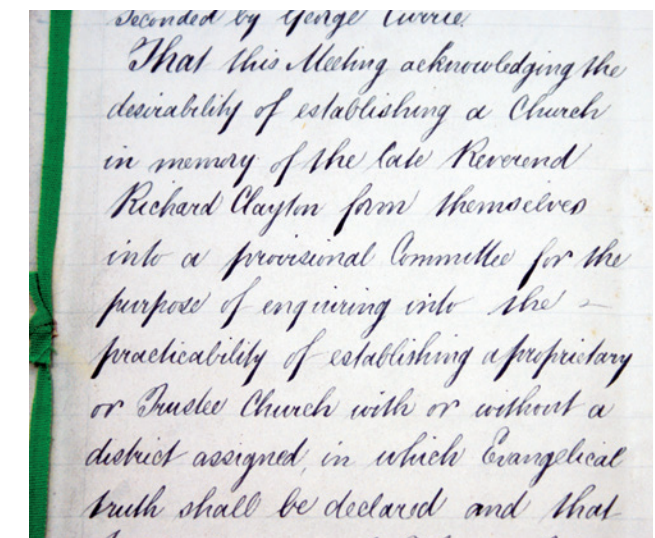 Seconded by George Currie.
That this Meeting acknowledging the
desirability of establishing a Church
in memory of the late Reverend
Richard Clayton form themselves
into a provisional Committee for the
purpose of enquiring into the –
practicability of establishing a proprietary
or Trustee Church with or without a
district assigned, in which Evangelical
truth shall be declared and that